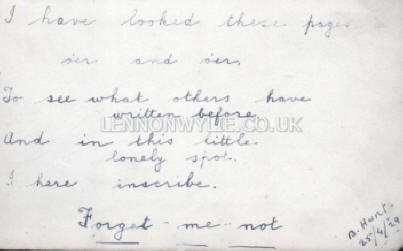 I have looked these pages
o'er and o'er,
To see what others have
written before
LENNONWYLIE.CO.UK
And in this little
lonely spot.
I here inscribe.
Forget-me-not
B. Hunt.
25/4/29